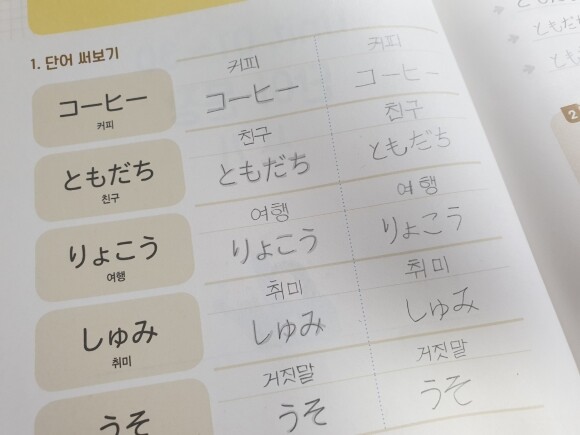 1. 단어 써보기
커피 커피
コーヒー コーヒー コーヒー
커피
친구 친구
ともだち ともだち ともだち
친구
여행 여행
りょこう りょこう りょこう
여행
취미 취미
しゅみ しゅみ しゅみ
취미
거짓말 거짓말
うそ うそ うそ
2